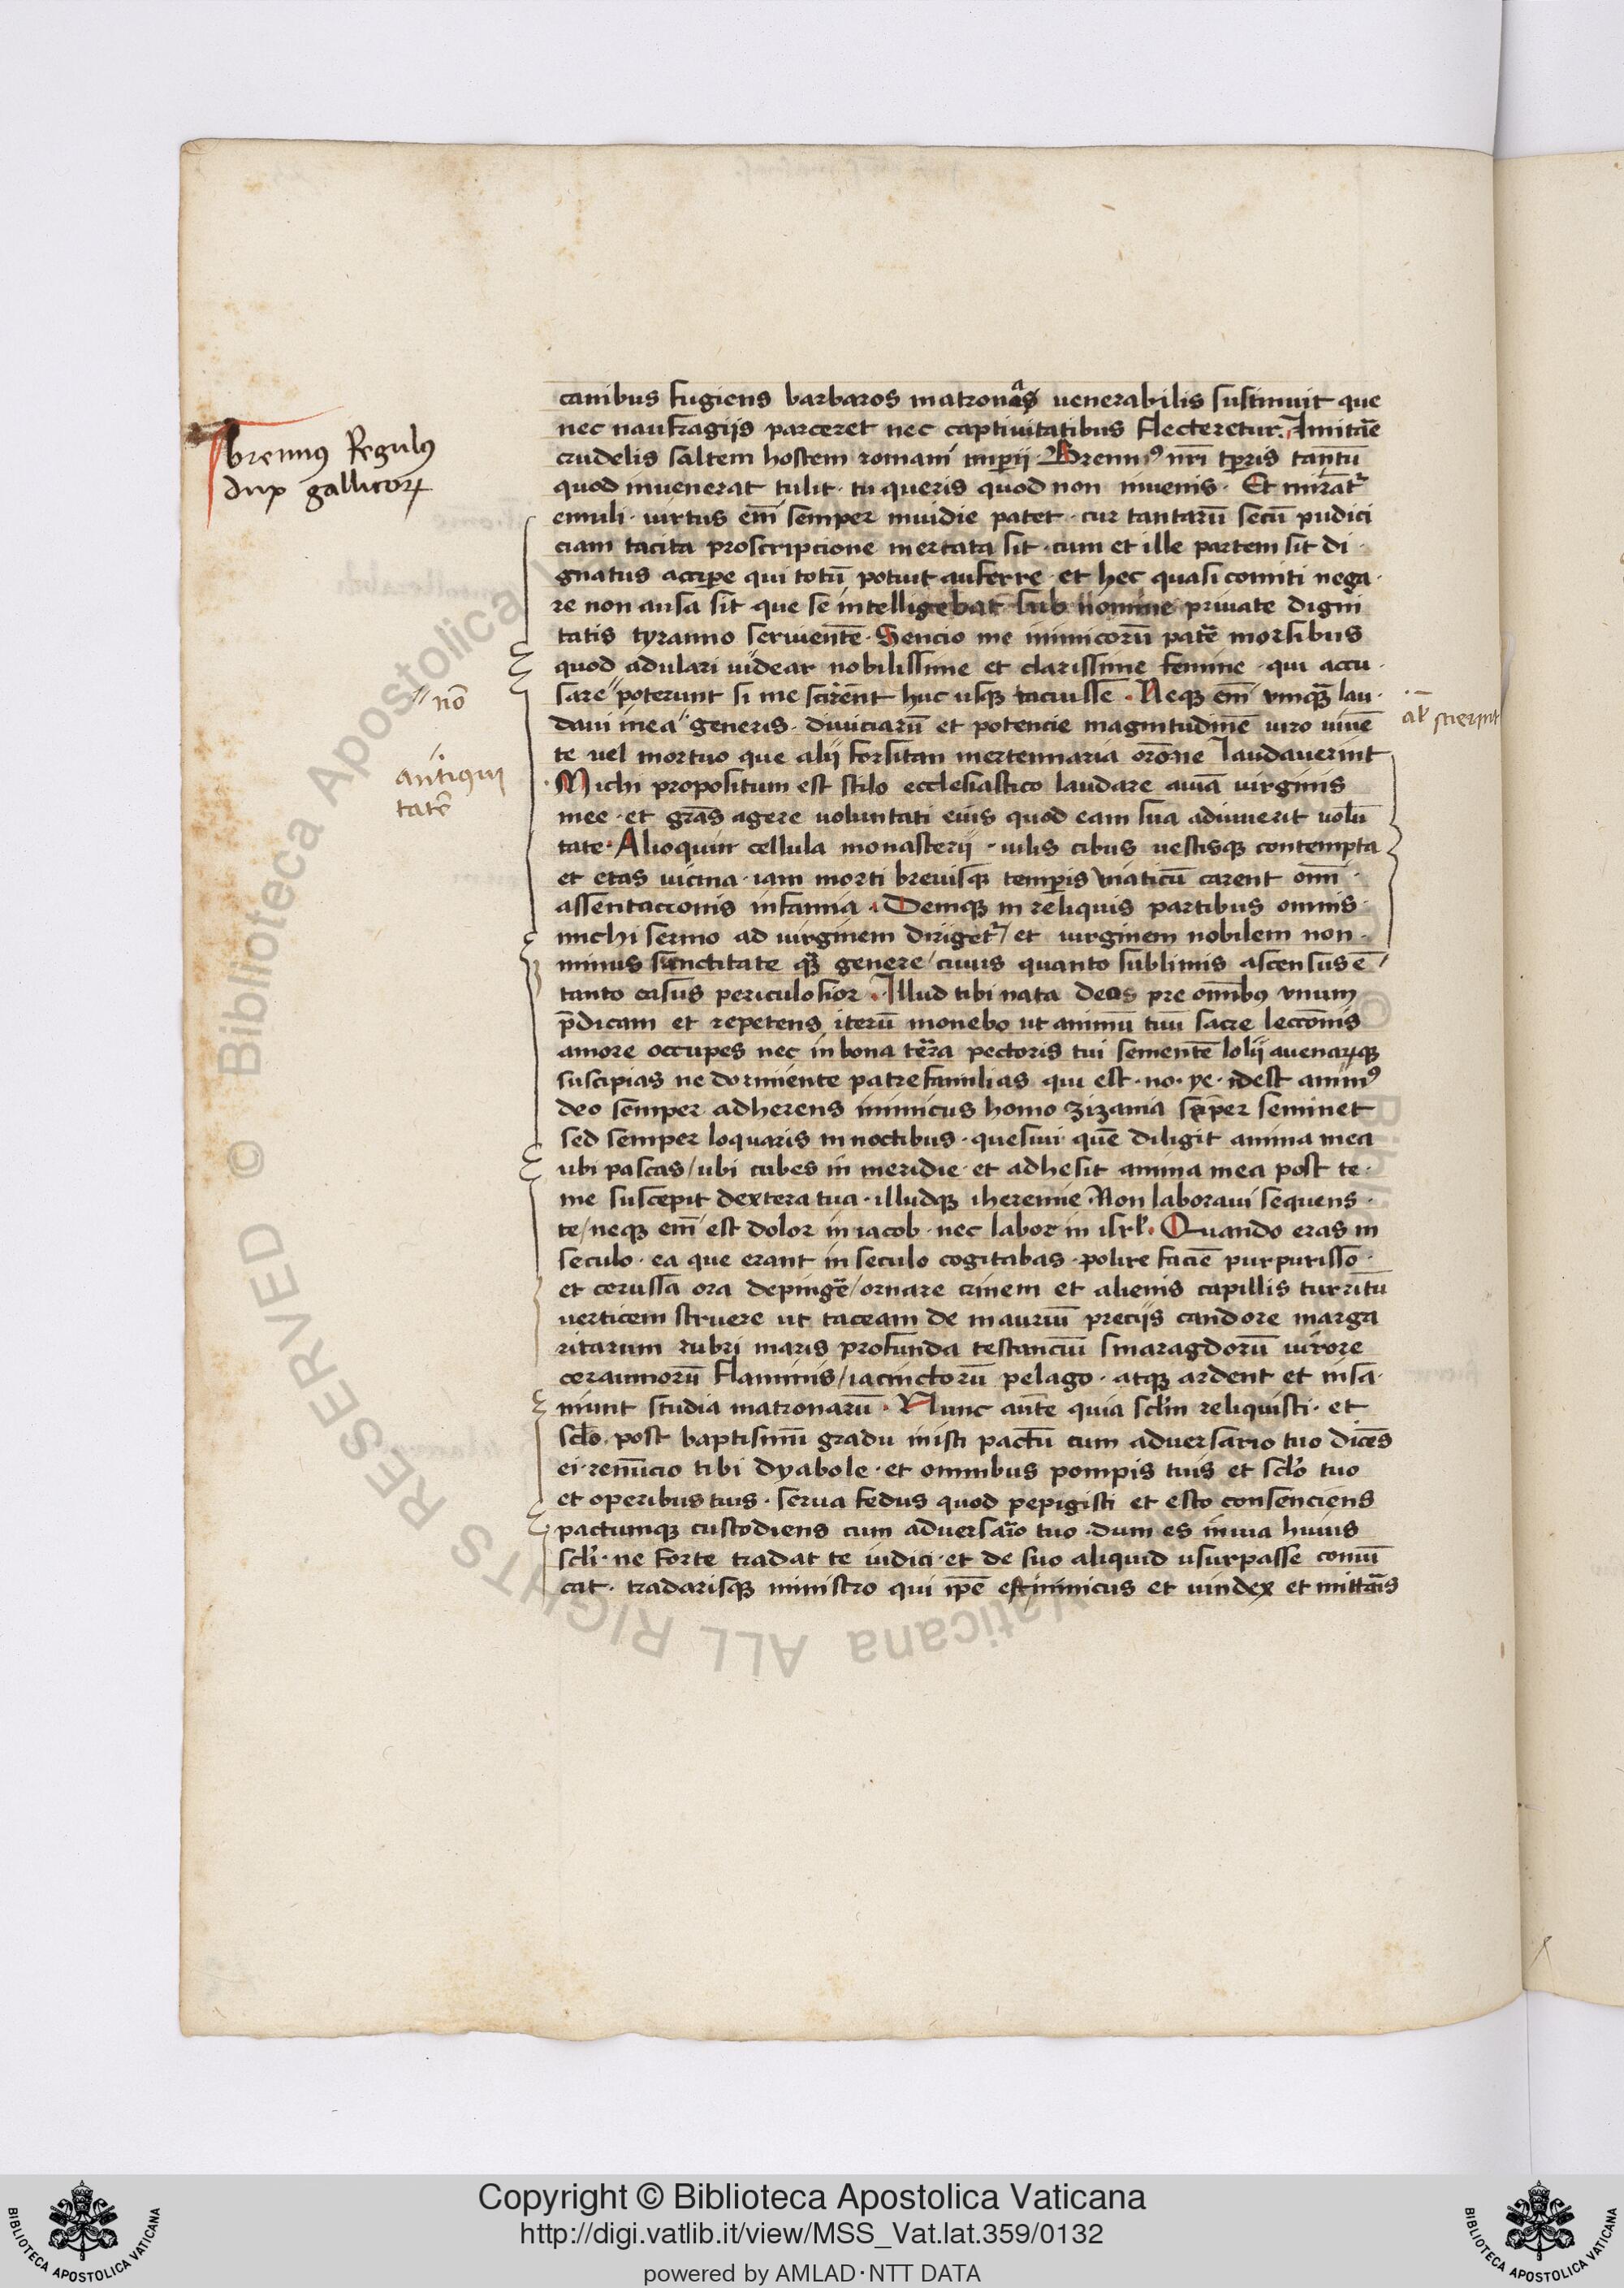 canibus fugiens barbaros matronas venerabilis sustinuit que
nec naufragijs parceret nec captivitatibus flecteretur. Imitarē
crudelis saltem hostem romani imp̄ij. Brennꝰ nr̄i tp̄ris tantū
quod invenerat tulit. tu queris quod non invenis. Et mirāt᷑
emuli. virtus em̄ semper invidie patet. cur tantarū secū pudici
ciam tacita proscripcione mercata sit. cum et ille partem sit di
gnatus accip̄e qui totū potuit auferre. et hec quasi comiti nega
re non ausa sit que se intelligebat sub nomine private digni
tatis tyranno servientē. Sencio me inimicorū patēre morsibus
quod adulari videar nobilissime et clarissime femine. qui accu
sare poterunt si me scirēnt huc usqꝫ tacuisse. Neqꝫ em̄ vmqꝫ lau
davi in ea generis. diviciarū et potencie magnitudinē viro vivē
te vel mortuo que alij forsitan mercennaria orōne laudaverint
Michi propositum est stilo ecclesiastico laudare aviā virginis
mee. et grās agere voluntati eius quod eam sua adiuverit volū
tate. Alioquin cellula monasterij. vilis cibus vestisqꝫ contempta
et etas vicina iam morti brevisqꝫ temp̄is viaticū carent om̄i
assentaccionis infamia. Deniqꝫ in reliquis partibus omnis
michi sermo ad virginem dirigēt᷑/ et virginem nobilem non
minus sanctitate qꝫ genere/ cuius quanto sublimis ascensus ē/
tanto casus periculosior. Illud tibi nata deo pre om̄ibꝰ vnum
p̄dicam et repetens iterū monebo ut animū tuū sacre lecciōnis
amore occupes nec in bona terra pectoris tui sementē lolij avenarꝫqꝫ
suscipias ne dormiente patrefamilias qui est. no. ye. idest animꝰ
deo semper adherens inimicus homo zizania sup̄er seminet
sed semper loquaris in noctibus. quesivi quē diligit anima mea
ubi pascas/ ubi cubes in meridie. et adhesit anima mea post te
me suscepit dextera tua. illudqꝫ iheremie Non laboravi sequens
te/ neqꝫ em̄ est dolor in iacob. nec labor in isrl̄. Quando eras in
seculo. ea que erant in seculo cogitabas. polire faciē purpurisso
et cerussa ora depingē/ ornare crinem et alienis capillis turritū
verticem struere ut taceam de inauriū precijs candore marga
ritarum rubri maris profunda testanciū smaragdorū virore
ceraunnorū flammis/ iacinctorū pelago. atqꝫ ardent et insa
niunt studia matronarū. Nunc autē quia scl̄m reliquisti. et
scl̄o post baptismū gradu inisti pactū cum adversario tuo dicēs
ei. renūcio tibi dyabole. et omnibus pompis tuis et scl̄o tuo
et operibus tuis. serva fedus quod pepigisti et esto consenciens
pactumqꝫ custodiens cum adversario tuo. dum es in via huius
scl̄i. ne forte tradat te iudici et de suo aliquid usurpasse convī
cat. tradarisqꝫ ministro qui ip̄e est inimicus et vindex et mittāris
brennꝰ Regulꝰ
dux gallicorꝫ
nō
antiqui
tatē
al̄ scierint
© Biblioteca Apostolica Vaticana ALL RIGHTS RESERVED
Copyright © Biblioteca Apostolica Vaticana
http://digi.vatlib.it/view/MSS_Vat.lat.359/0132
powered by AMLAD·NTT DATA
BIBLIOTECA APOSTOLICA VATICANA
BIBLIOTECA APOSTOLICA VATICANA